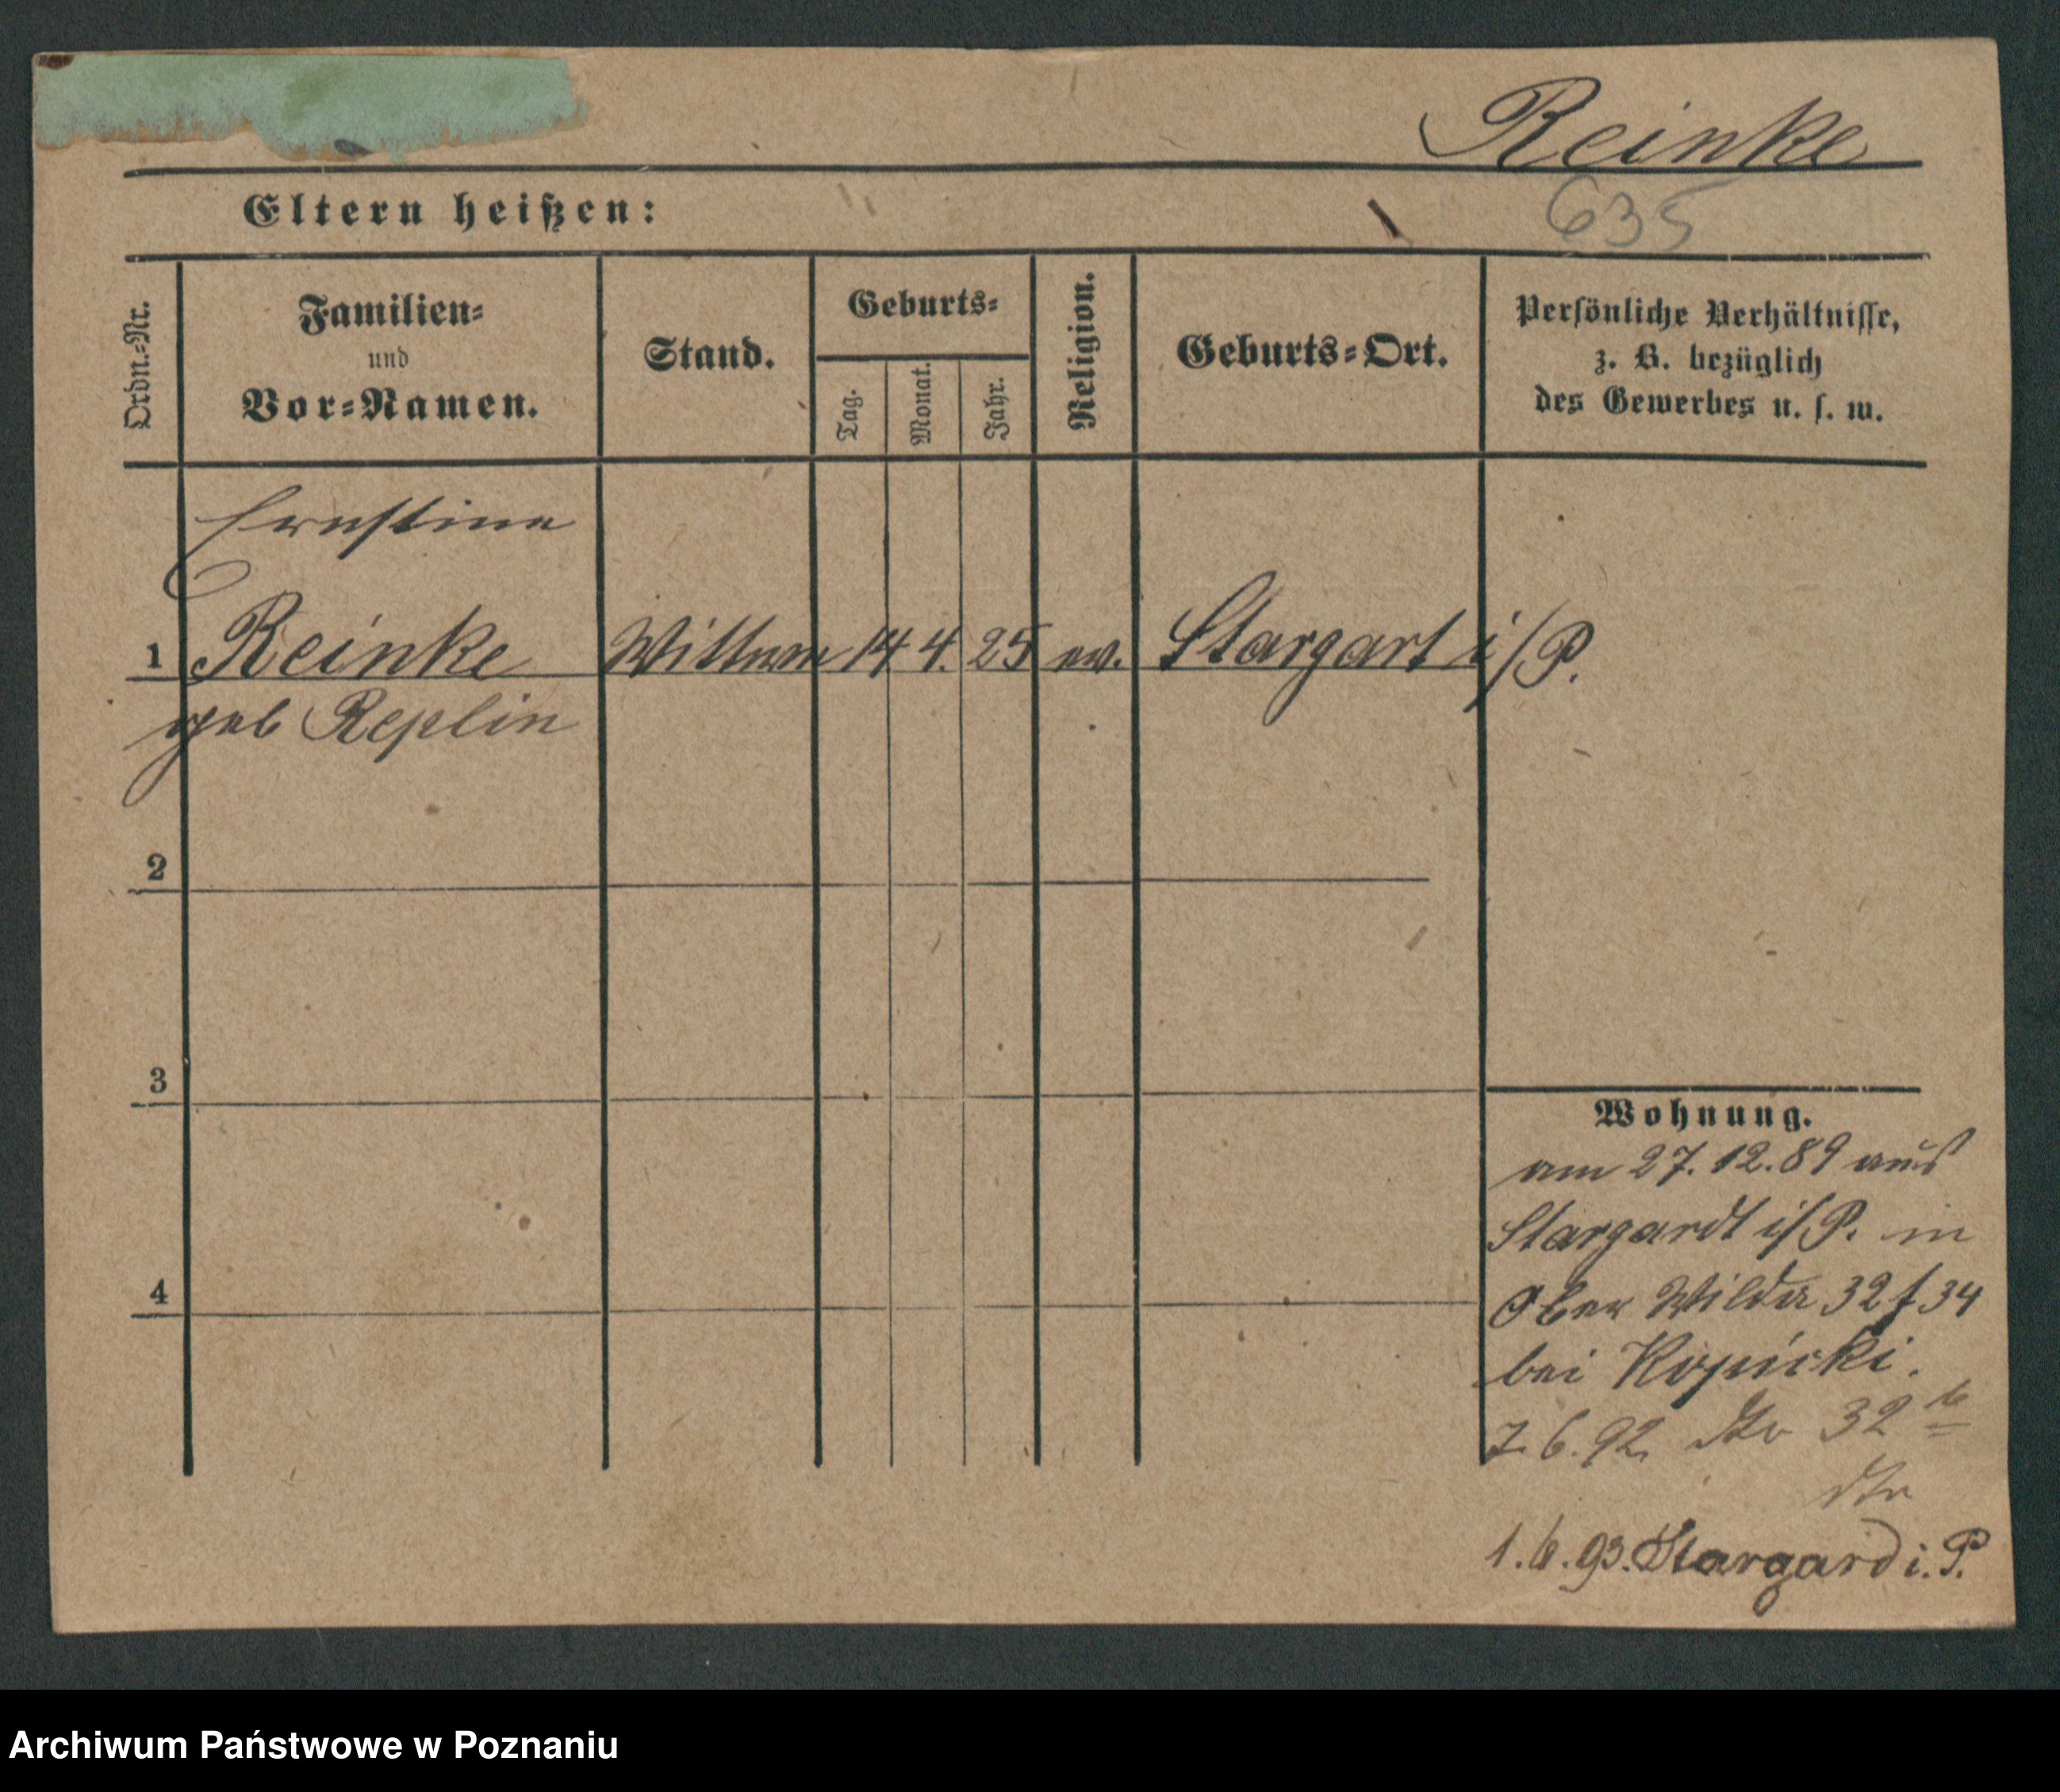 Reinke
635
Eltern heißen:
Ordn.-Nr.
Familien-
und
Vor-Namen.
Stand.
Geburts-
Tag.
Monat.
Jahr.
Religion.
Geburts-Ort.
Persönliche Verhältnisse,
z. B. bezüglich
des Gewerbes u. s. w.
Ernstine
1 Reinke Wittwe 14 4. 25 ev. Stargart i/P.
geb Replin
2
3
4
Wohnung.
am 27.12.89 aus
Stargardt i/P. in
Ober Wilda 32/34
bei
7.6.92 32 b
1.6.93. Stargard i. P.
Archiwum Państwowe w Poznaniu